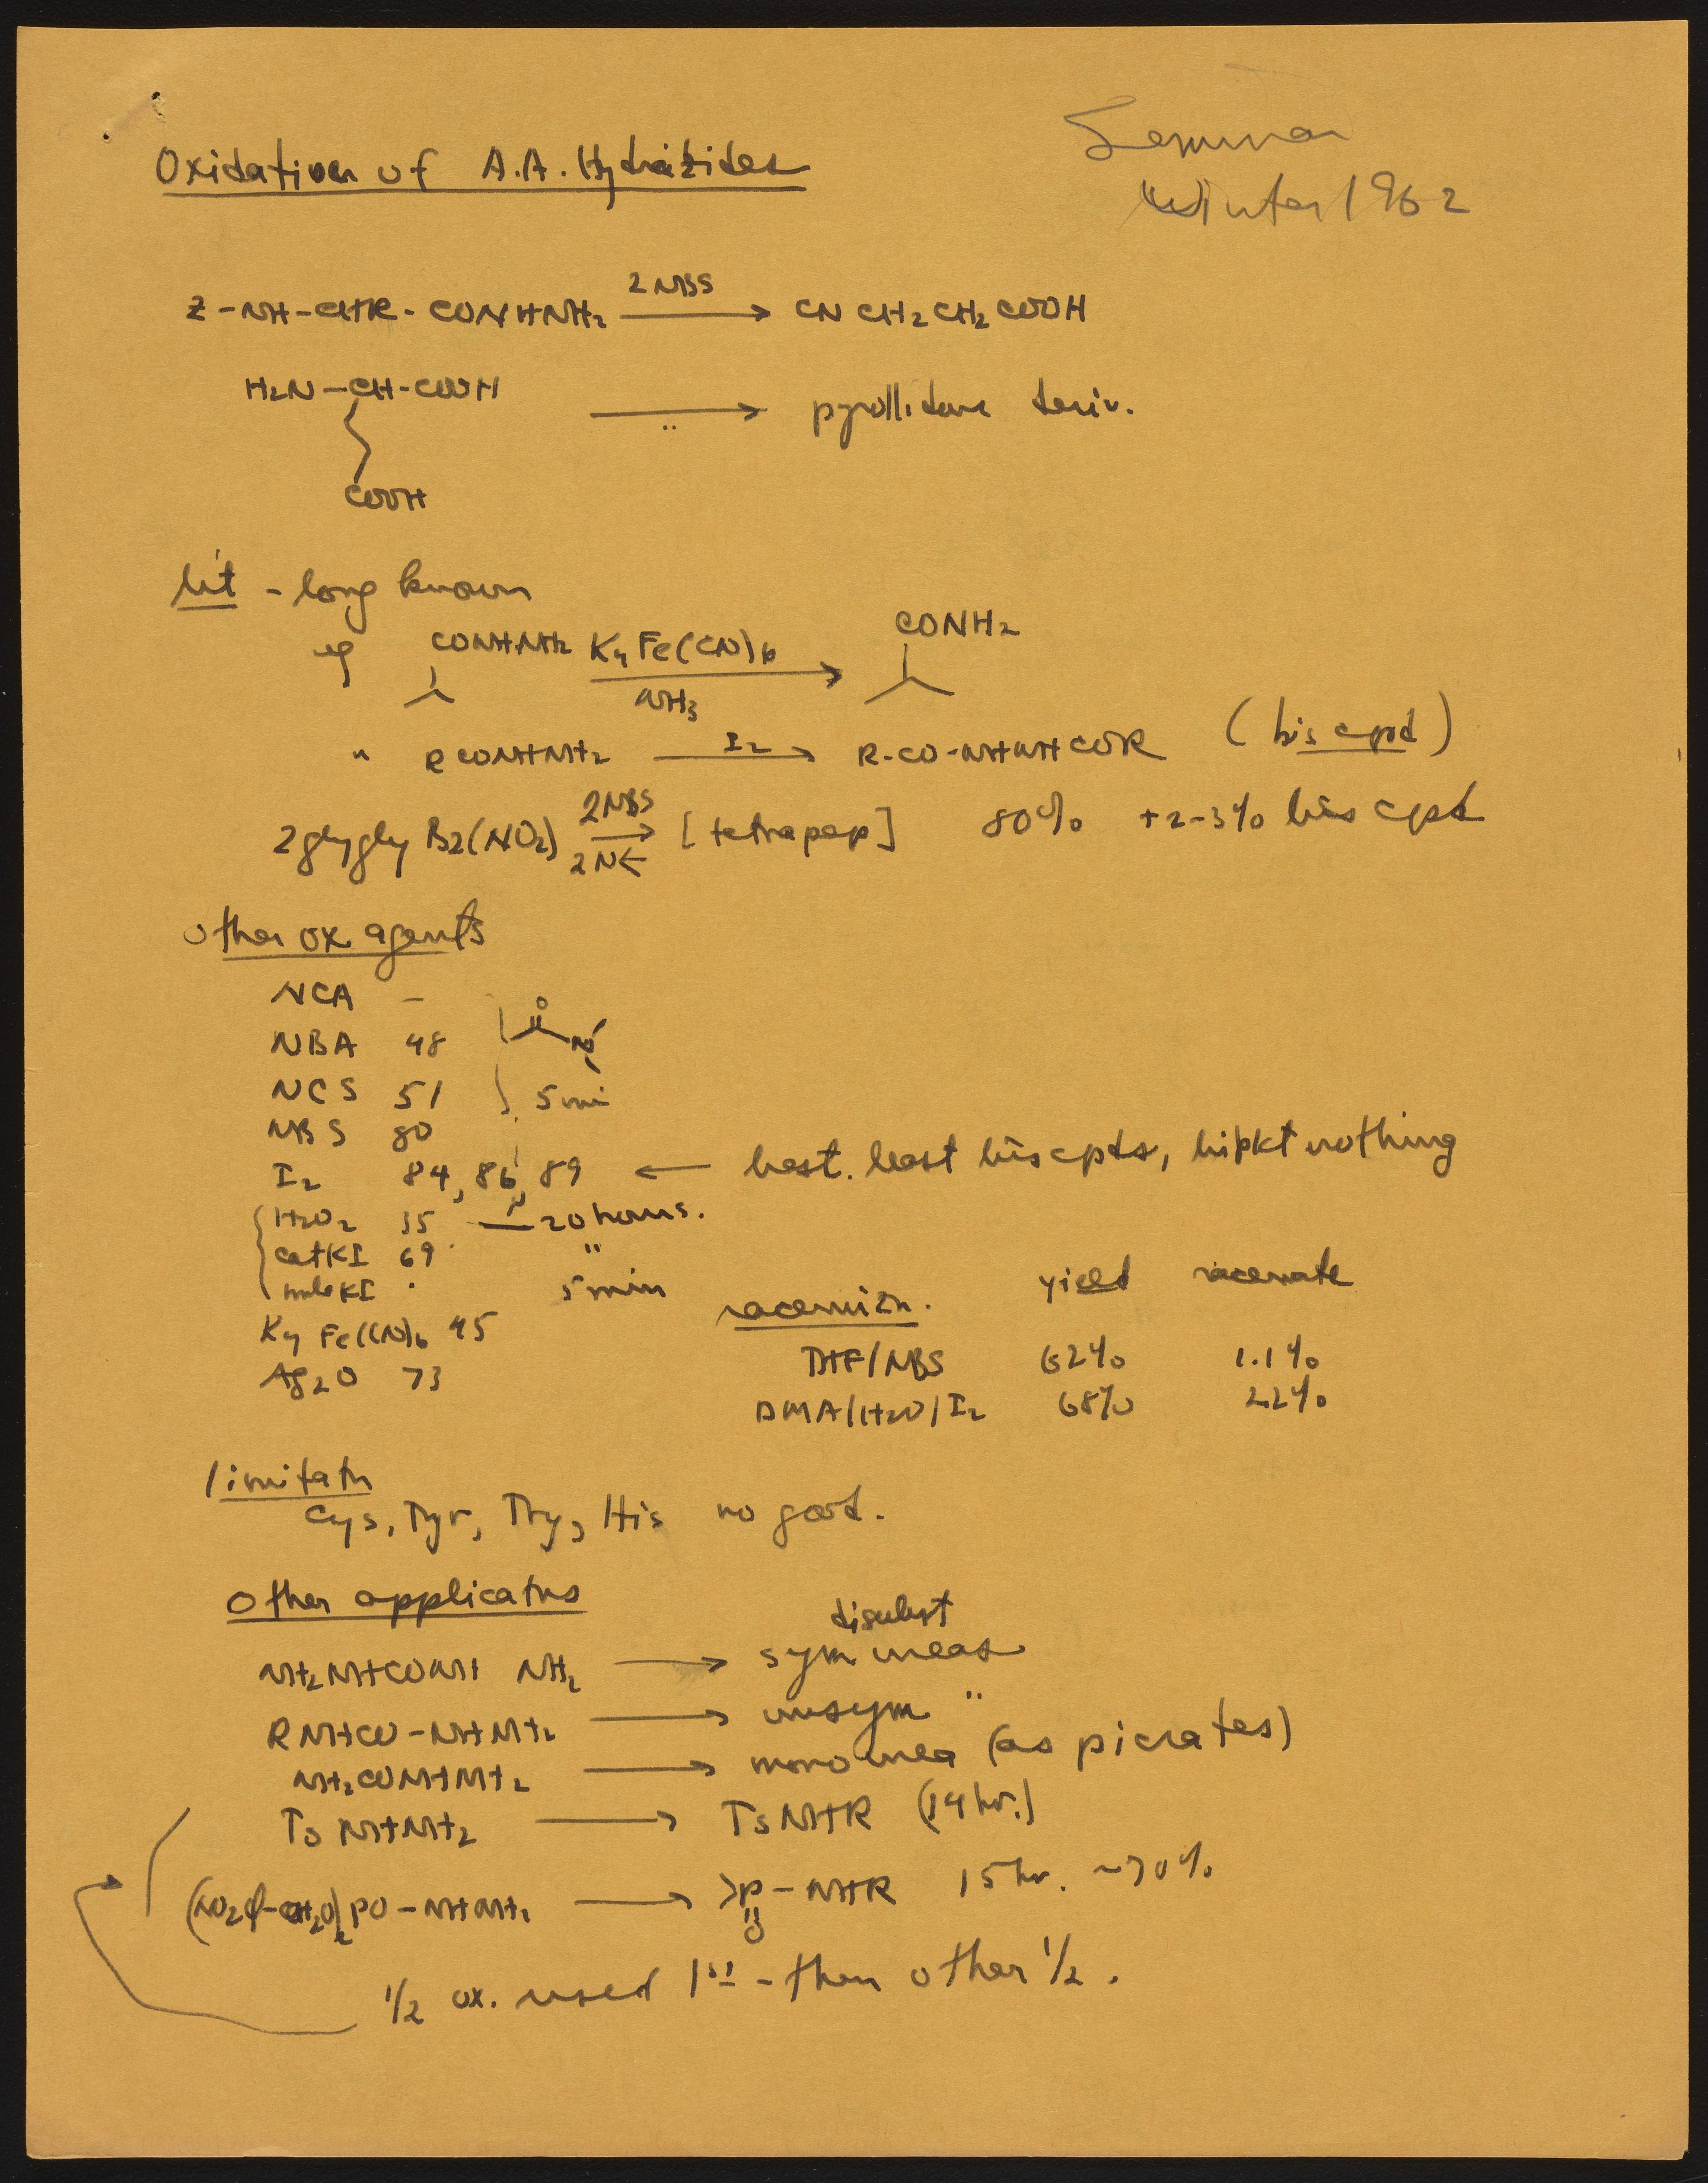 Seminar
Winter 1962
Oxidation of A.A. Hydrazides
Z-NH-CHR-CONHNH2 2NBS → CNCH2CH2COOH
H2N-CH-COOH → pyrollidone deriv.
"
COOH
lit - long known
eg CONHNH2 K4Fe(CN)6 → CONH2
NH3
" RCONHNH2 I2 → R-CO-NHNHCOR (bis cpd)
2glygly Bz(NO2) 2NBS → [tetrapep] 80% +2-3% bis cpd
other ox agents
NCA -
O
NBA 48 N
NCS 51 } 5 min
NBS 80
I2 84, 86, 89 ← best. least bis cpds, nothing
{H2O2 35 — 20 hours.
cat KI 69 "
mole KI 5 min
K4Fe(CN)6 45
Ag2O 73
racemizn. yield racemate
/NBS 62% 1.1%
DMA/H2O/I2 68% 2.2%
limitatn
Cys, Tyr, Try, His no good.
Other applicatns
disubst
NH2NHCONHNH2 → sym ureas
RNHCO-NHNH2 → unsym "
NH2CONHNH2 → mono urea (as picrates)
TsNHNH2 → TsNHR (14 hr.)
(NO2φ-CH2O)2PO-NHNH2 → >P-NHR 15 hr. ~70%
O
1/2 ox. used 1st - then other 1/2.